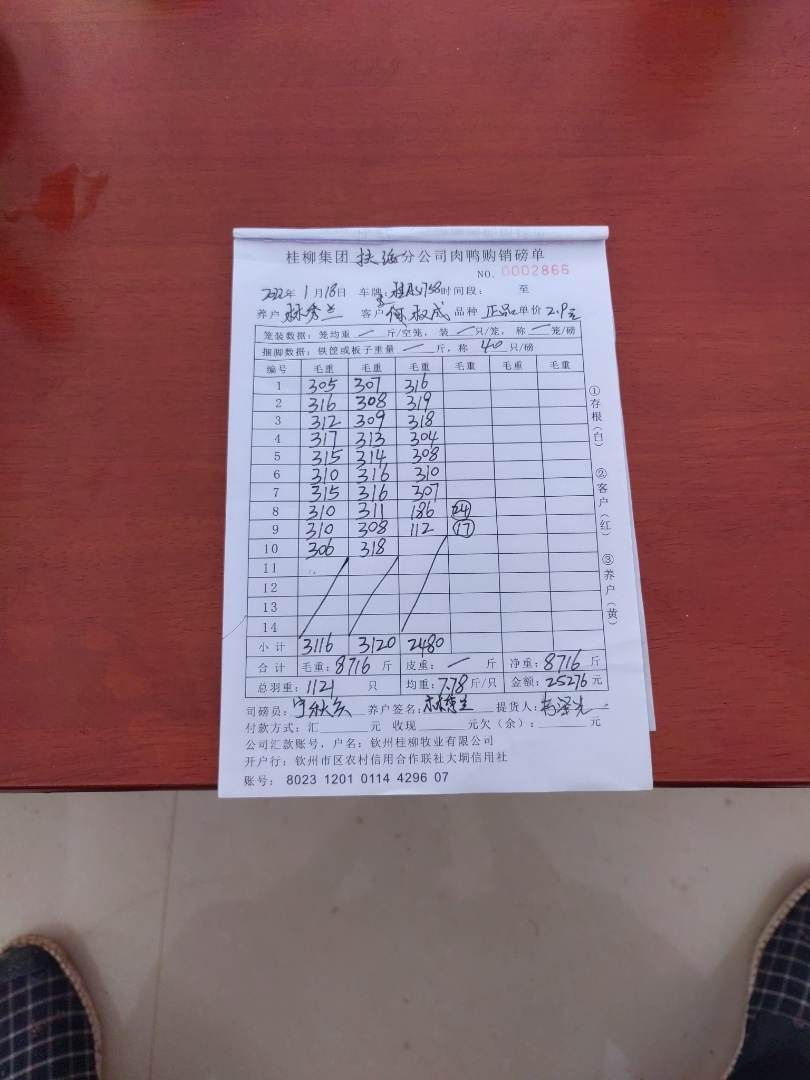 桂柳集团 扶绥 分公司肉鸭购销磅单
NO. 0002866
2022年 1 月 18日 车牌: 时间段: 至
养户 林秀兰 客户 品种 正品 单价 2.9元
笼装数据: 笼均重 一 斤/空笼, 装 一 只/笼, 称 一 笼/磅
捆脚数据: 铁筐或板子重量 一 斤, 称 40 只/磅
编号 毛重 毛重 毛重 毛重 毛重 毛重
1 305 307 316
2 316 308 319
3 312 309 318
4 317 313 304
5 315 314 308
6 310 316 310
7 315 316 307
8 310 311 186 24
9 310 308 112 17
10 306 318
11
12
13
14
小计 3116 3120 2480
合计 毛重: 8716 斤 皮重: 一 斤 净重: 8716 斤
总羽重: 1121 只 均重: 7.78 斤/只 金额: 25276 元
司磅员: 养户签名: 提货人:
付款方式: 汇 元 收现 元欠(余): 元
公司汇款账号, 户名: 钦州桂柳牧业有限公司
开户行: 钦州市区农村信用合作联社大垌信用社
账号: 8023 1201 0114 4296 07
①存根(白)
②客户(红)
③养户(黄)